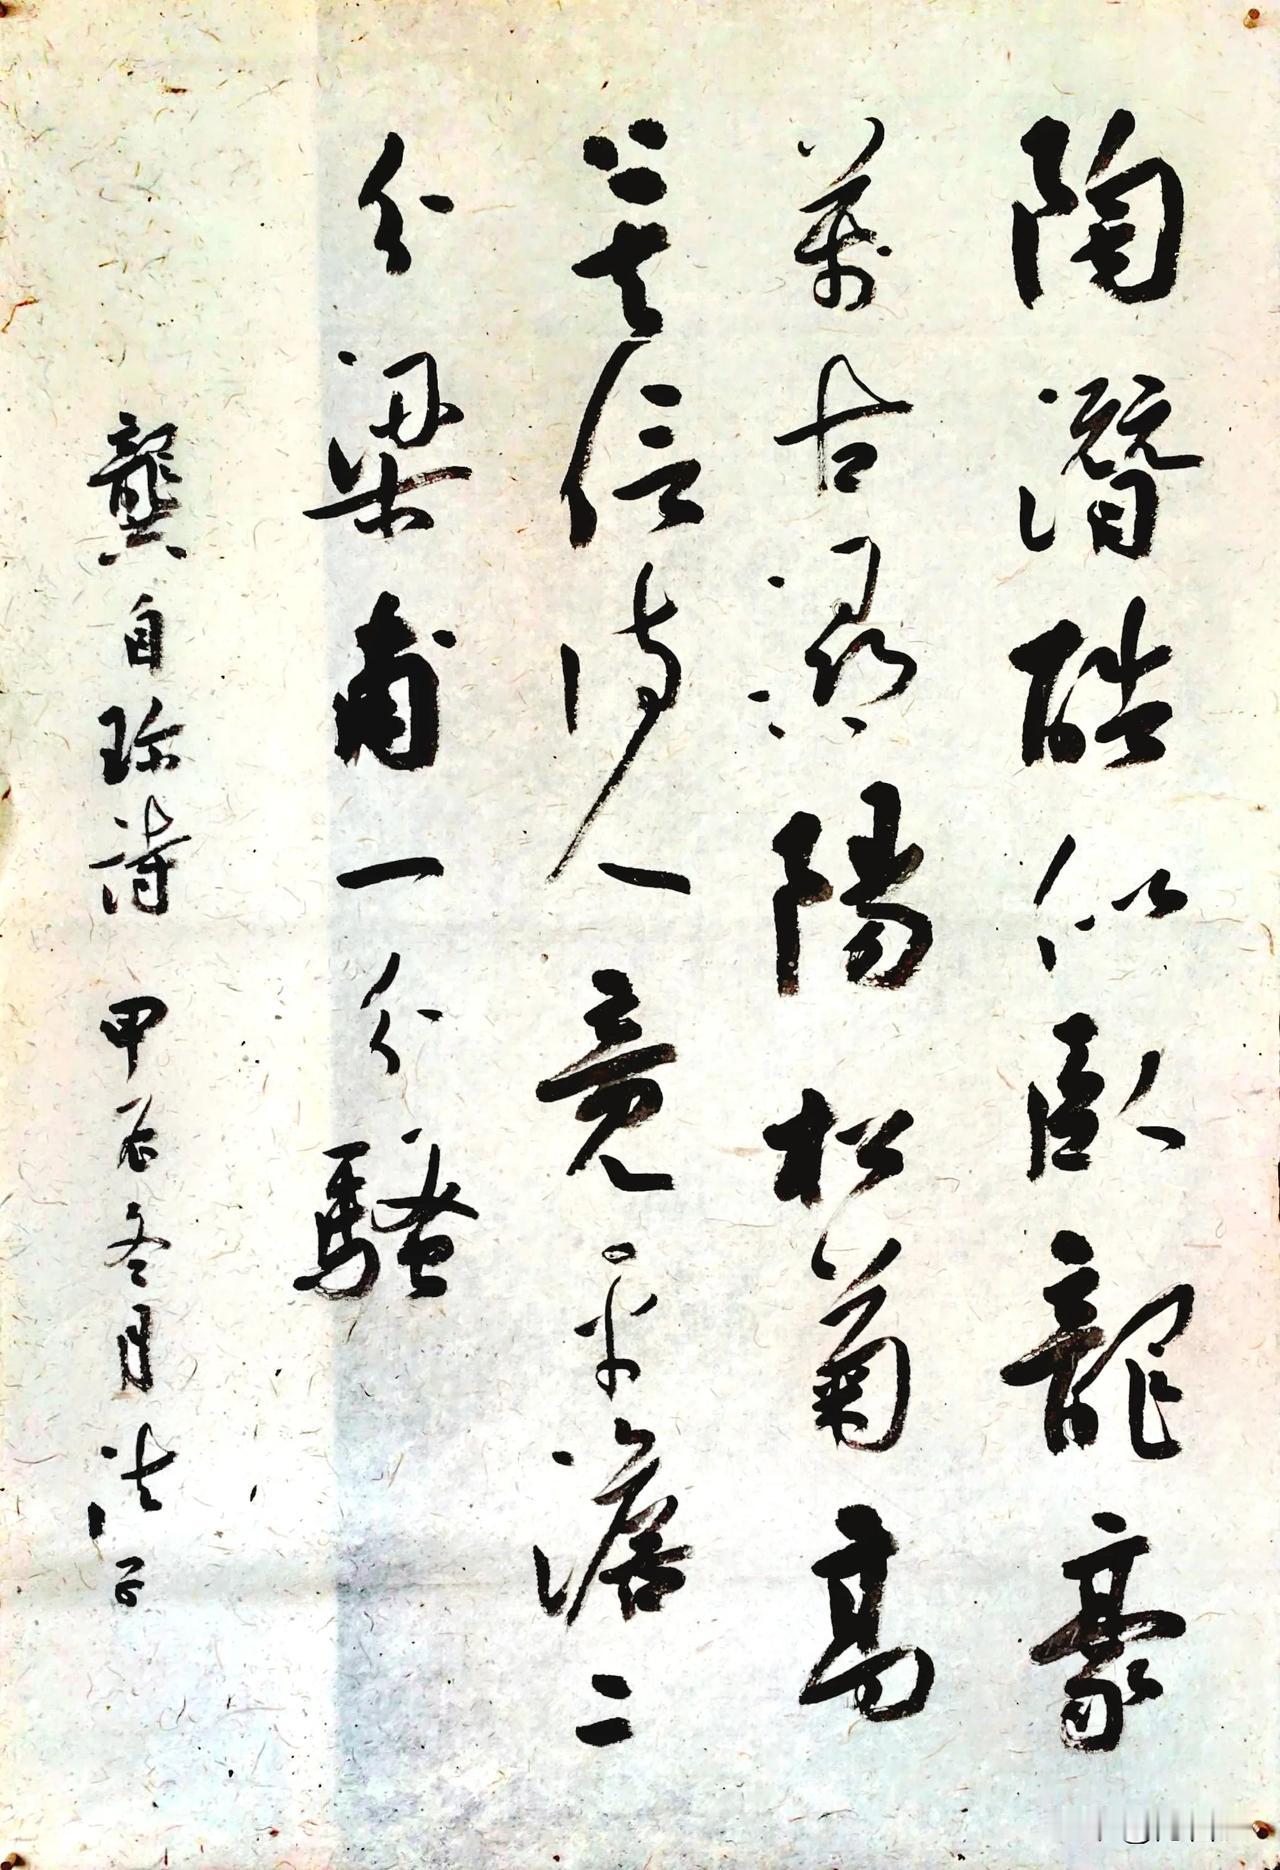 陶潛酷似臥龍豪
萬古潯陽松菊高
莫信詩人竟平澹二
分梁甫一分騷
龔自珍詩 甲辰冬月